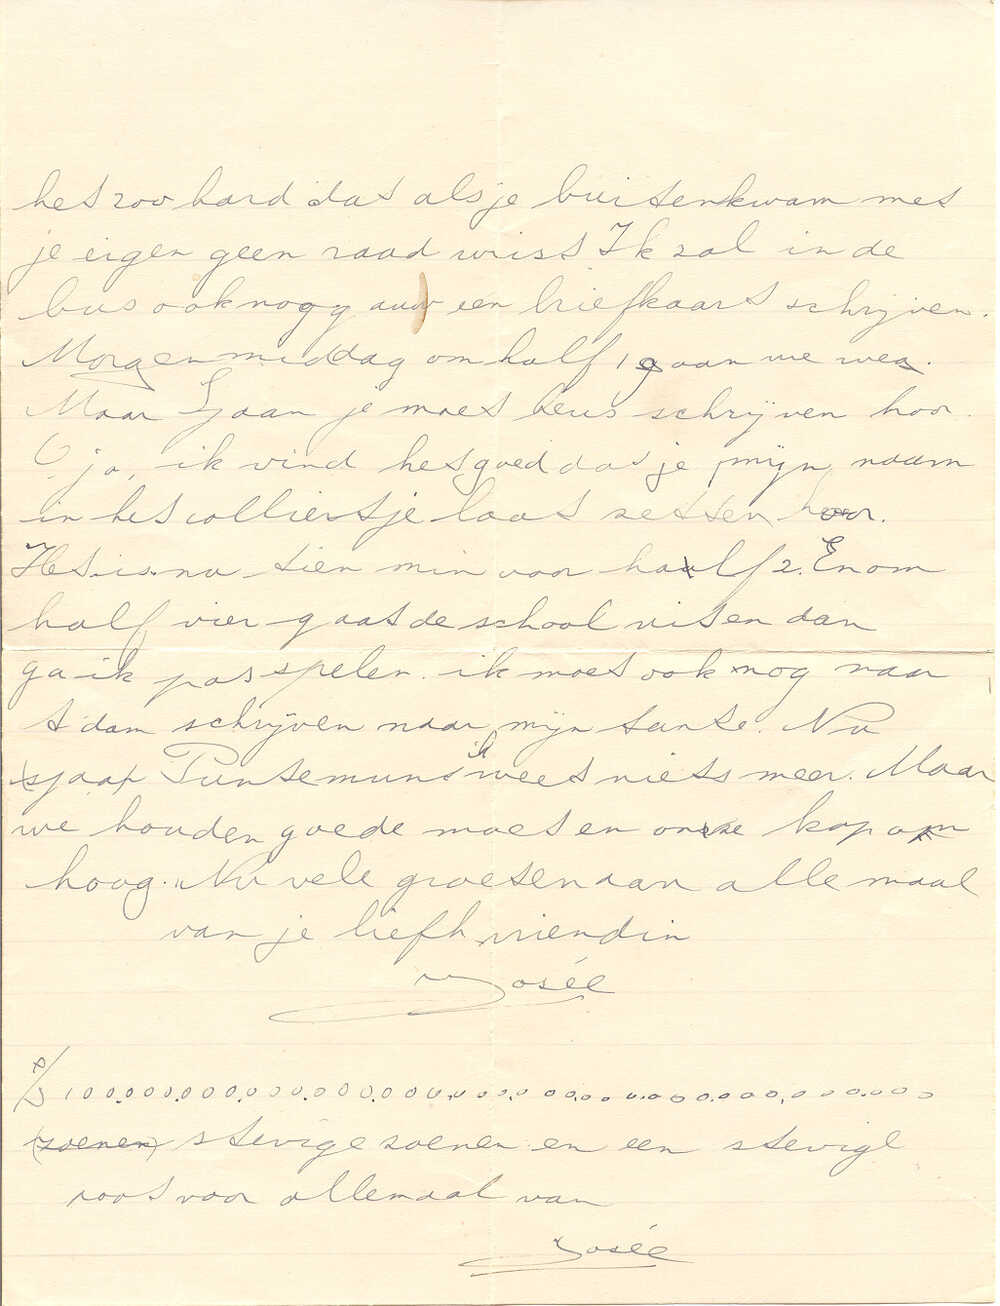 het zoo hard dat als je buitenkwam met
je eigen geen raad wist Ik zal in de
bus ook nog een briefkaart schrijven.
Morgen middag om half 1 gaan we weg.
Maar Sjaan je moet teus schrijven hoor.
O ja, ik vind het goed dat je mijn naam
in het colliertsje laat zetten hoor.
Het is nu tien min voor half 2. En om
half vier gaat de school uit en dan
ga ik pas spelen. ik moet ook nog naar
A dam schrijven naar mijn tante. Nu
sjaap Puntemuns ik weet niets meer. Maar
we houden goede moet en onze kop om
hoog. Nu vele groeten aan alle maal
van je liefh vriendin
Josée
100.000.000.000.000.000.000.000.000.000.000.000.000.000
(zoenen) stevige zoenen en een stevige
poot voor allemaal van
Josée